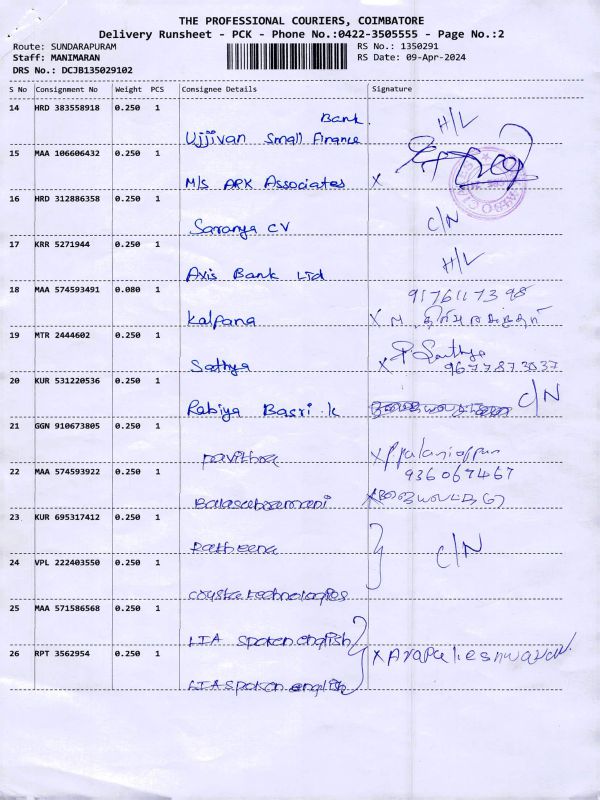 THE PROFESSIONAL COURIERS, COIMBATORE
Delivery Runsheet - PCK - Phone No.:0422-3505555 - Page No.:2
Route: SUNDARAPURAM RS No.: 1350291
Staff: MANIMARAN RS Date: 09-Apr-2024
DRS No.: DCJB135029102
S No Consignment No Weight PCS Consignee Details Signature
14 HRD 383558918 0.250 1
Bank
Ujjivan Small Finance H/L
15 MAA 106606432 0.250 1
M/s APK Associates X
16 HRD 312886358 0.250 1
Saranya CV C/N
17 KRR 5271944 0.250 1
Axis Bank Ltd H/L
18 MAA 574593491 0.080 1
Kalpana X
19 MTR 2444602 0.250 1
Sathya X P Sathya
9677873037
20 KUR 531220536 0.250 1
Rabiya Basri .k C/N
21 GGN 910673805 0.250 1
Pavithra X
936067467
22 MAA 574593922 0.250 1
Balasubramani X
23 KUR 695317412 0.250 1
Ratheena
24 VPL 222403550 0.250 1 C/N
technologies
25 MAA 571586568 0.250 1
LIA spoken english
26 RPT 3562954 0.250 1 X Arapalieshwaran
LIA spoken english